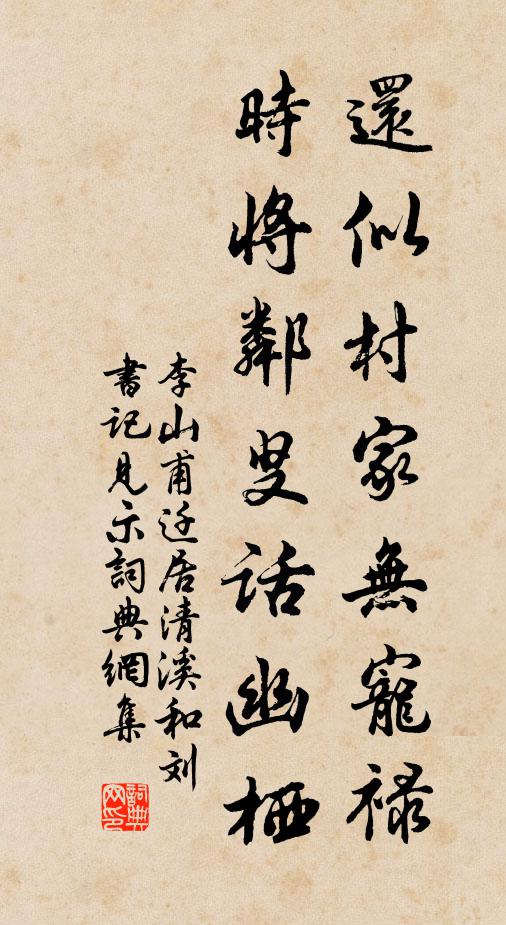 還似村家無寵祿
時將鄰叟話幽栖
李山甫迁居清溪和刘
書记見示詞典網集
詞典網印